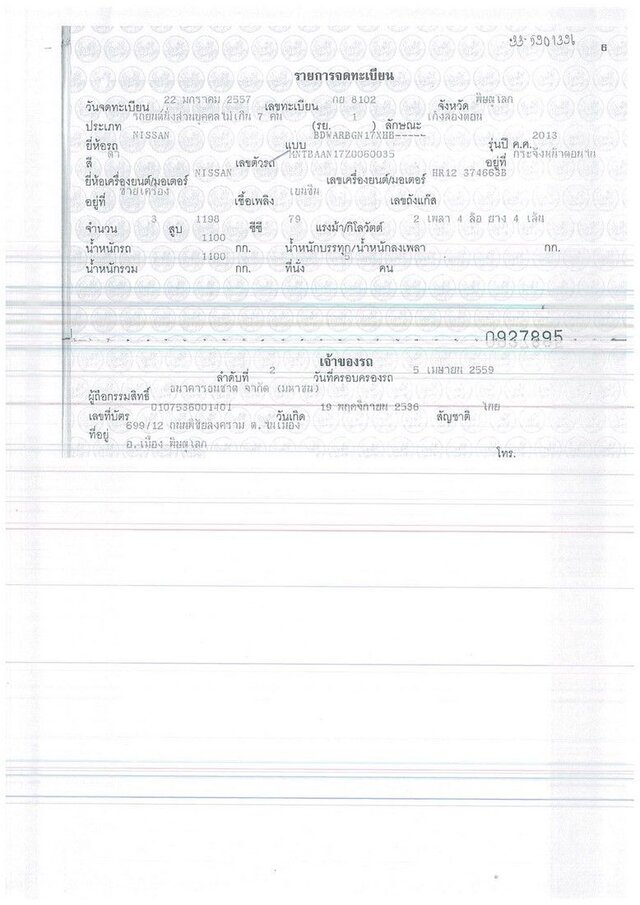 6
รายการจดทะเบียน
วันจดทะเบียน 22 มกราคม 2557 เลขทะเบียน กย 8102 จังหวัด พิษณุโลก
ประเภท รถยนต์นั่งส่วนบุคคลไม่เกิน 7 คน (รย. 1 ) ลักษณะ เก๋งสองตอน
ยี่ห้อรถ NISSAN แบบ BDWARBGN17XHB----- รุ่นปี ค.ศ. 2013
สี ดำ เลขตัวรถ MNTBAAN17Z0060035 อยู่ที่
ยี่ห้อเครื่องยนต์/มอเตอร์ NISSAN เลขเครื่องยนต์/มอเตอร์ HR12 374663B
อยู่ที่ ซ้ายเครื่อง เชื้อเพลิง เบนซิน เลขถังแก๊ส
จำนวน 3 สูบ 1198 ซีซี 79 แรงม้า/กิโลวัตต์ 2 เพลา 4 ล้อ ยาง 4 เส้น
น้ำหนักรถ 1100 กก. น้ำหนักบรรทุก/น้ำหนักลงเพลา กก.
น้ำหนักรวม 1100 กก. ที่นั่ง 5 คน
0927895
เจ้าของรถ
ลำดับที่ 2 วันที่ครอบครองรถ 5 เมษายน 2559
ผู้ถือกรรมสิทธิ์ ธนาคารธนชาต จำกัด (มหาชน)
เลขที่บัตร 0107536001401 วันเกิด 19 พฤศจิกายน 2536 สัญชาติ ไทย
ที่อยู่ 699/12 ถนนพิชัยสงคราม ต.ในเมือง
อ.เมือง พิษณุโลก โทร.